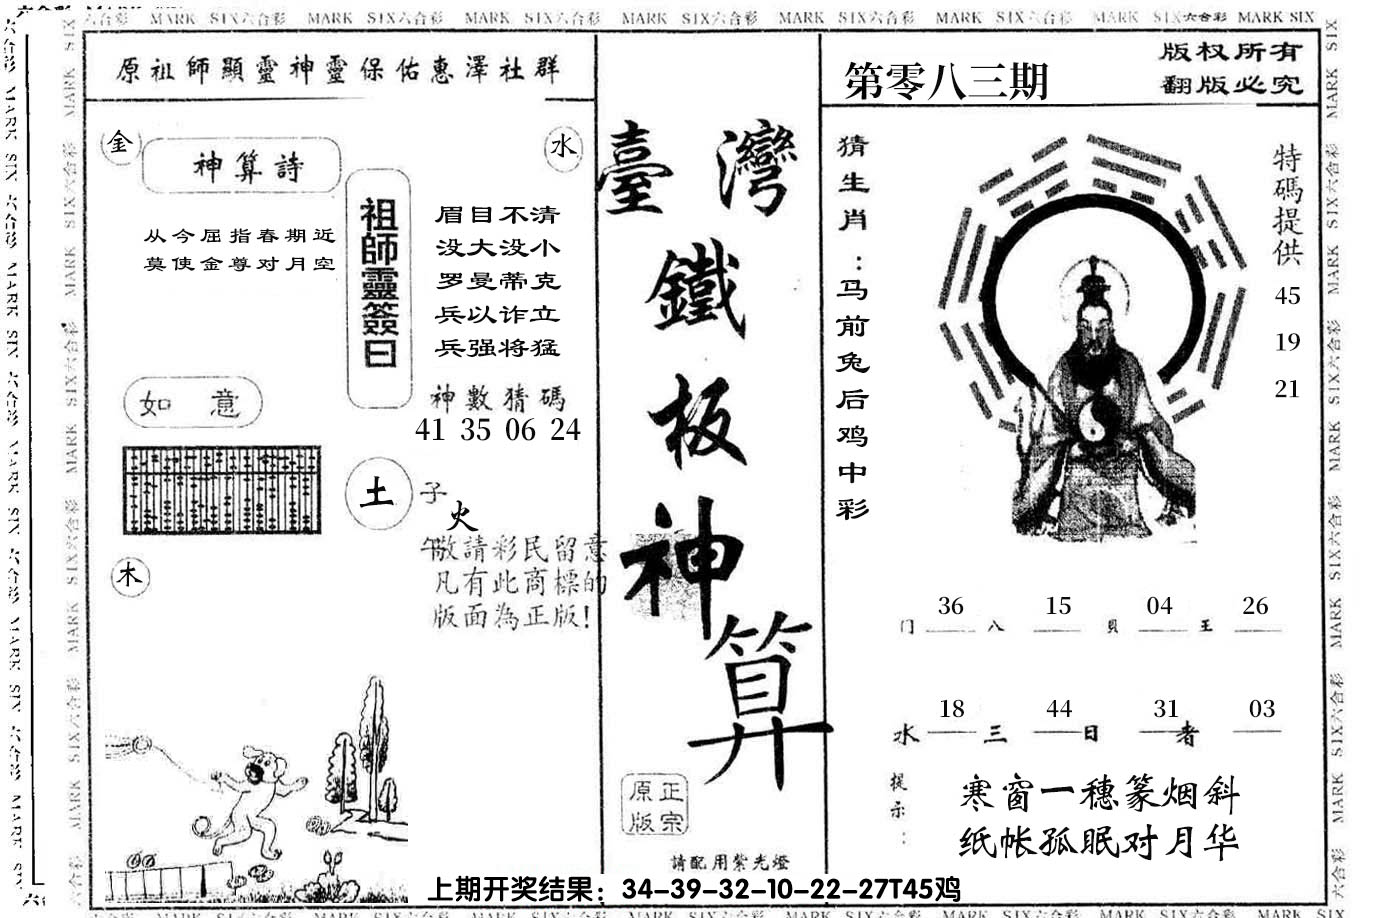 六合彩 MARK SIX六合彩 MARK SIX六合彩 MARK SIX六合彩 MARK SIX六合彩 MARK SIX六合彩 MARK SIX六合彩 MARK SIX六合彩 MARK SIX
原祖師顯靈神靈保佑惠澤社群
金
神算詩
水
从今屈指春期近
莫使金尊对月空
祖師靈簽曰
眉目不清
没大没小
罗曼蒂克
兵以诈立
兵强将猛
神數猜碼
41 35 06 24
如 意
土
子
火
午
木
敬請彩民留意
凡有此商標的
版面為正版!
臺灣
鐵
板
神
算
正宗
原版
請配用紫光燈
第零八三期
版权所有
翻版必究
猜生肖:马前兔后鸡中彩
特碼提供
45
19
21
门 36 八 15 貝 04 王 26
水 18 三 44 日 31 者 03
提示:
寒窗一穗篆烟斜
纸帐孤眠对月华
上期开奖结果:34-39-32-10-22-27T45鸡